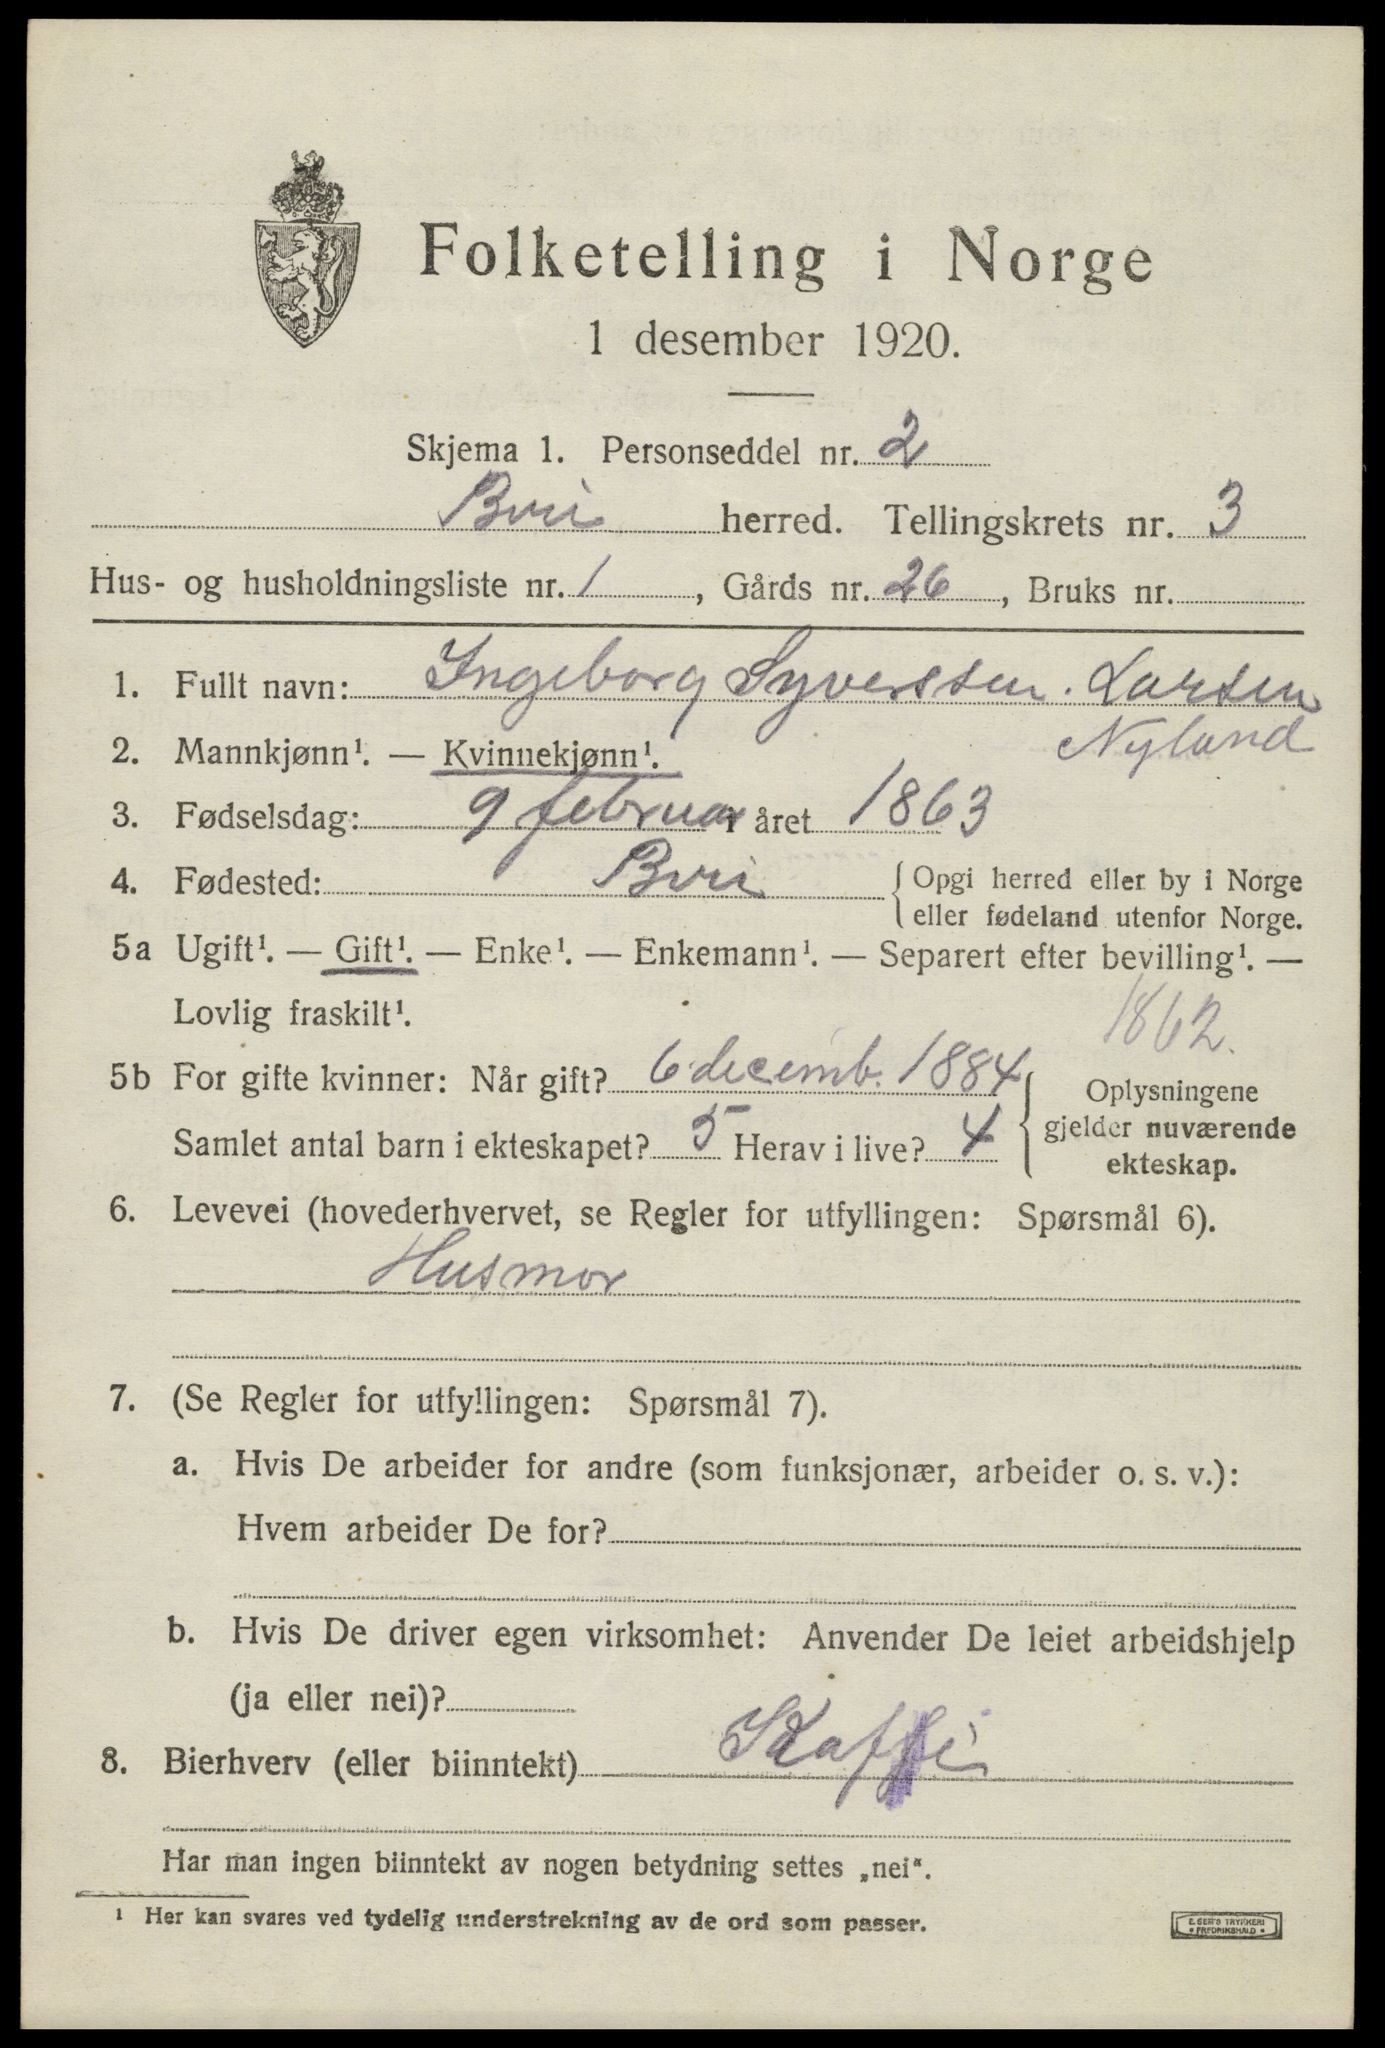 Folketelling i Norge
1 desember 1920.
Skjema 1. Personseddel nr. 2
Biri herred. Tellingskrets nr. 3
Hus- og husholdningsliste nr. 1, Gårds nr. 26, Bruks nr.
1. Fullt navn: Ingeborg Syverssen. Larsen
Nyland
2. Mannkjønn¹. — Kvinnekjønn¹.
3. Fødselsdag: 9 februar i året 1863
4. Fødested: Biri { Opgi herred eller by i Norge
eller fødeland utenfor Norge.
5a Ugift¹. — Gift¹. — Enke¹. — Enkemann¹. — Separert efter bevilling¹. —
Lovlig fraskilt¹.
1862.
5b For gifte kvinner: Når gift? 6 decemb. 1884
Samlet antal barn i ekteskapet? 5 Herav i live? 4
{ Oplysningene
gjelder nuværende
ekteskap.
6. Levevei (hovederhvervet, se Regler for utfyllingen: Spørsmål 6).
Husmor
7. (Se Regler for utfyllingen: Spørsmål 7).
a. Hvis De arbeider for andre (som funksjonær, arbeider o. s. v.):
Hvem arbeider De for?
b. Hvis De driver egen virksomhet: Anvender De leiet arbeidshjelp
(ja eller nei)?
8. Bierhverv (eller biinntekt)
Har man ingen biinntekt av nogen betydning settes „nei“.
¹ Her kan svares ved tydelig understrekning av de ord som passer.
E. SEM'S TRYKKERI
• FREDRIKSHALD •